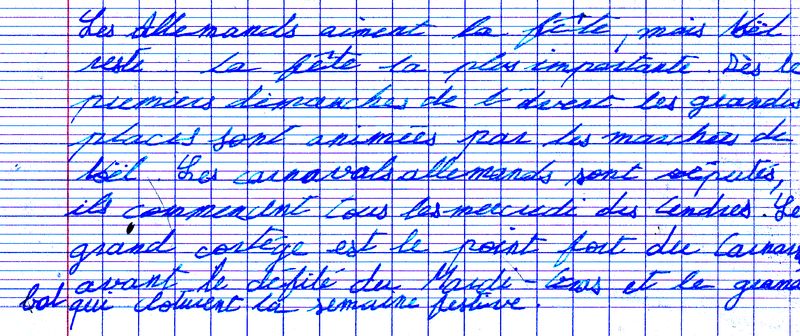 Les Allemands aiment la fête, mais Noël
reste la fête la plus importante. Dès le
premiers dimanches de l'Avent les grandes
places sont animées par les marchés de
Noël. Les carnavals allemands sont réputés,
ils commencent tous les mercredi des Cendres. Le
grand cortège est le point fort du Carnav
avant le défilé du Mardi-Gras et le grand
bal qui cloturent la semaine festive.